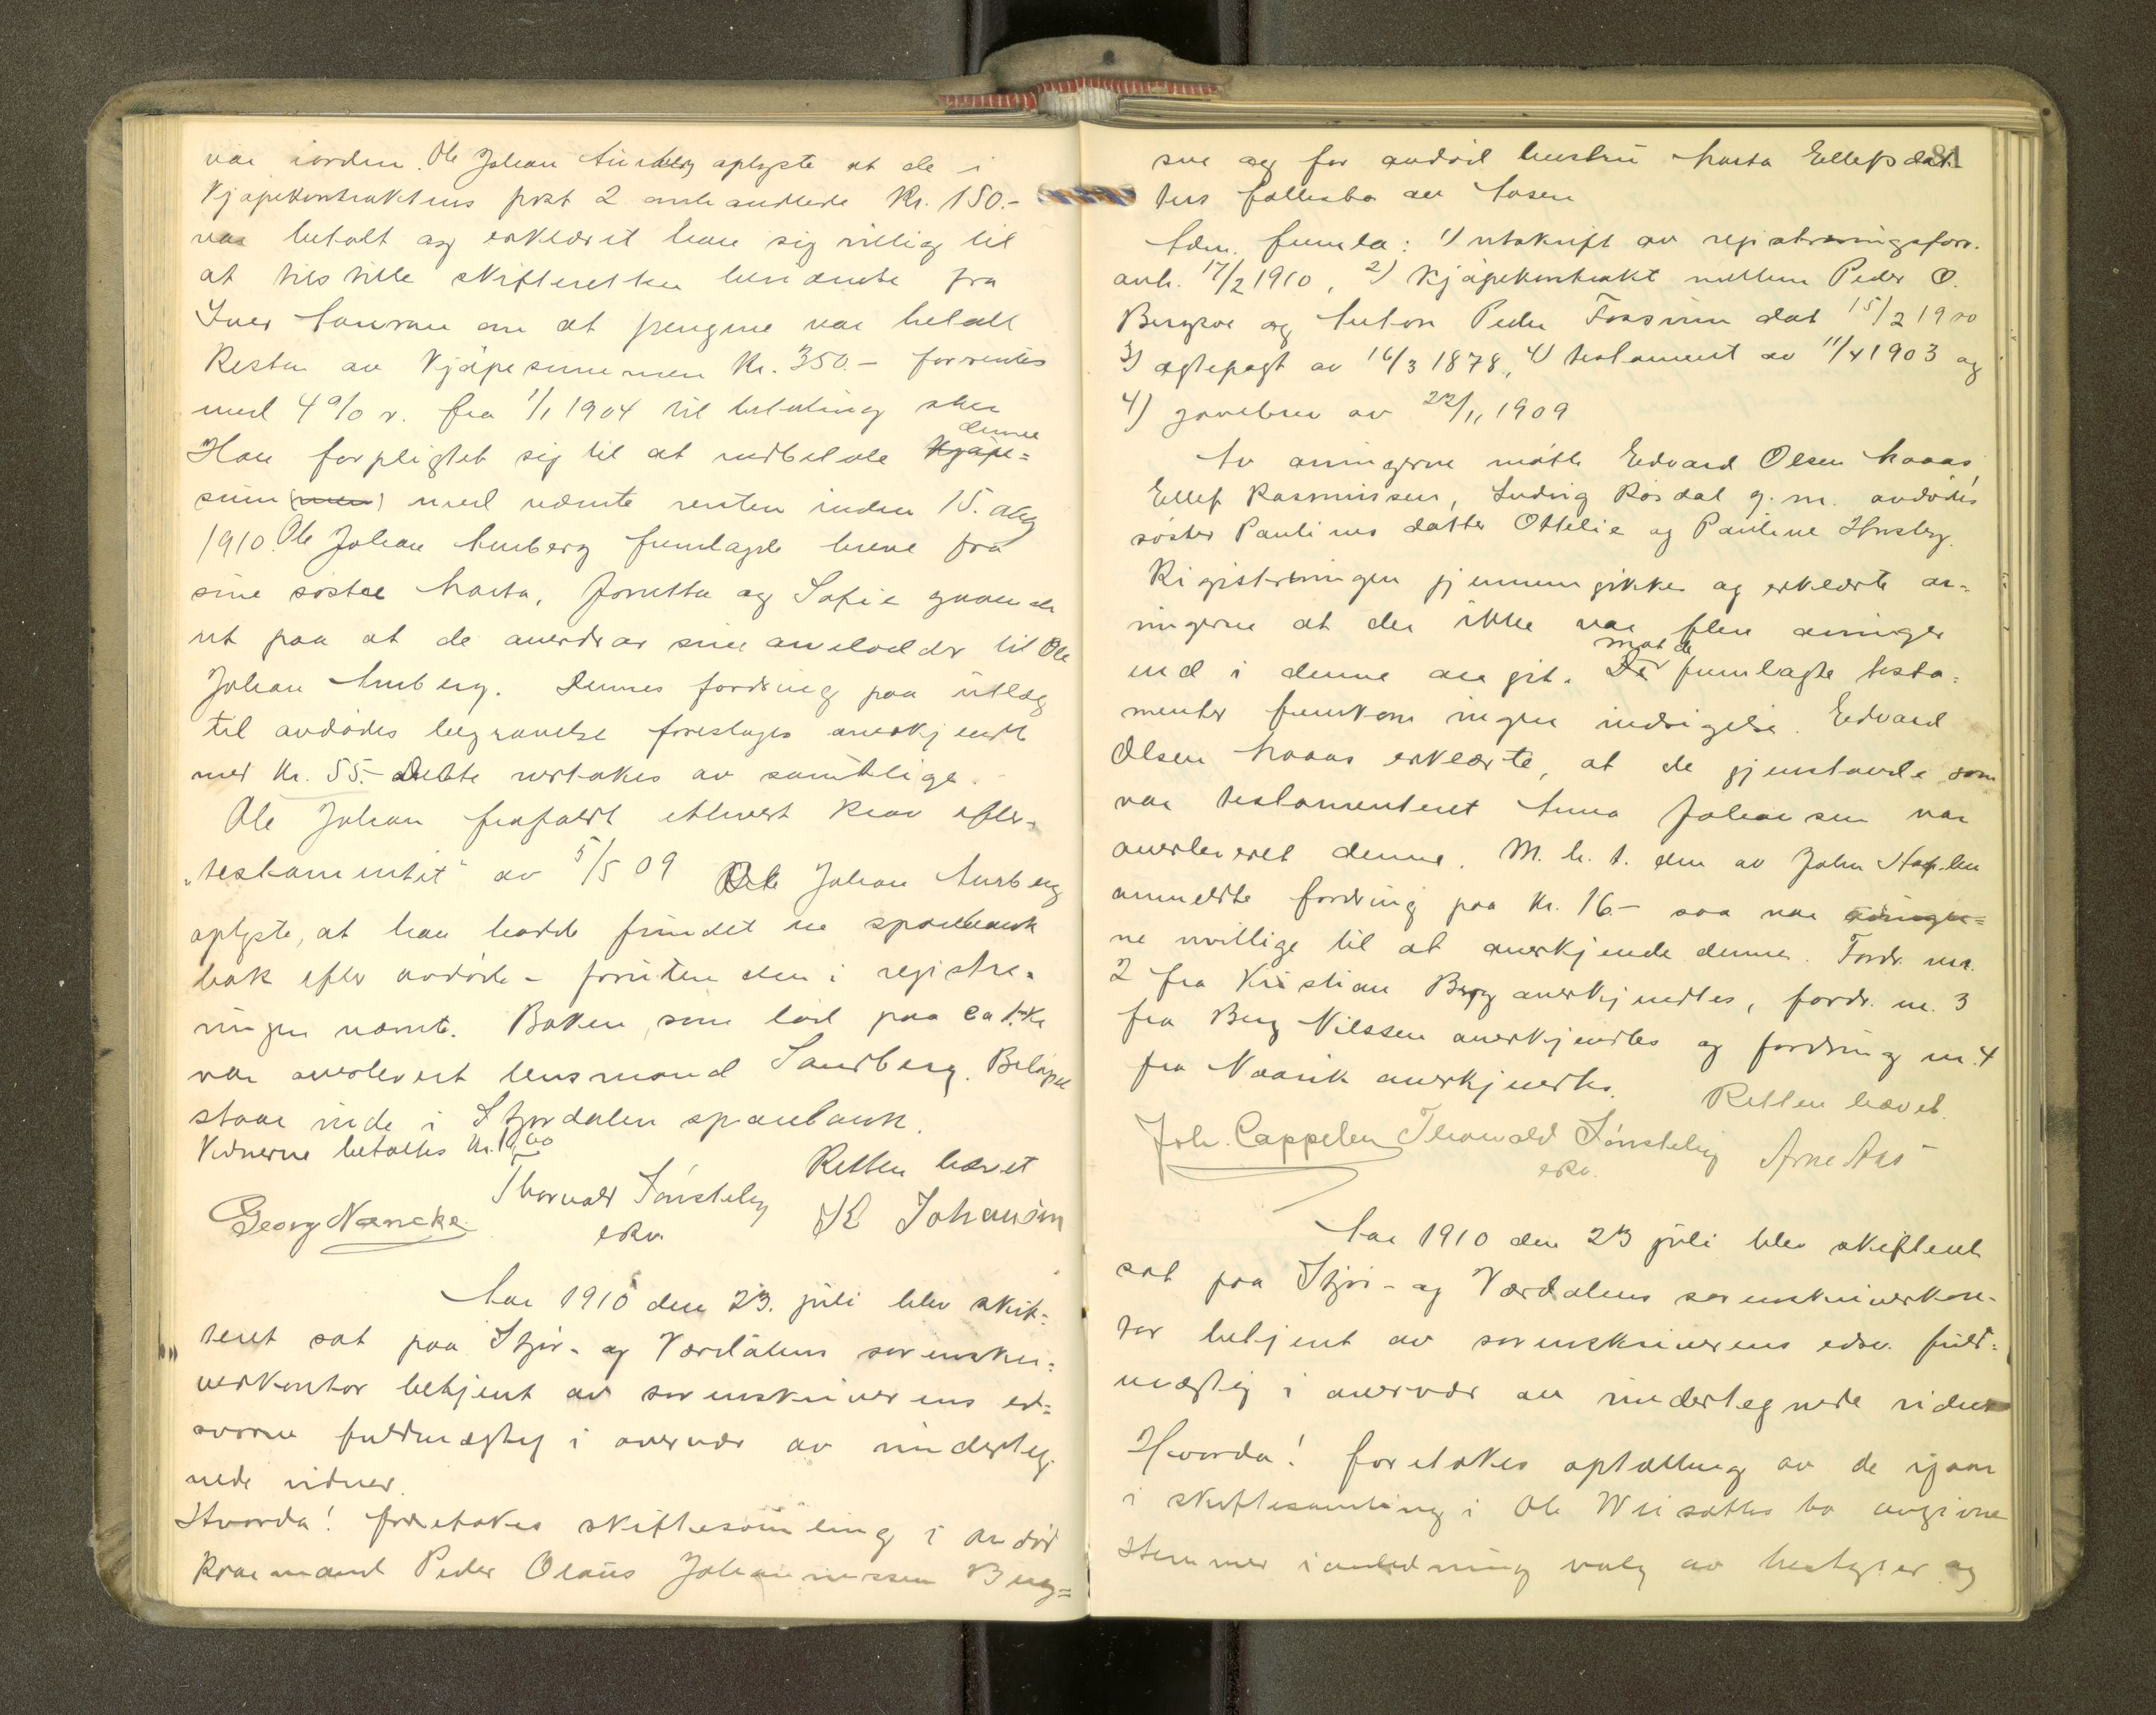 var iorden. Ole Johan Aunberg oplyste at de i
kjøpekontraktens post 2 omhandlede Kr. 150.-
var betalt og erklæret han sig villig til
at tilstille skifteretten
fra
Iver
om at pengene var betalt
Resten av kjøpesummen Kr. 350.- forrentes
med 4 % r. fra 1/1 1904 til betaling sker
denne
Han forpligtet sig til at indbetale kjøpe=
sum (men) med nævnte renter inden 15. aug
1910. Ole Johan Aunberg fremlagde breve fra
sine søstre Marta, Jonetta og Sofie gaaende
ut paa at de overdrar sine arvelodder til Ole
Johan Aunberg. Dennes fordring paa utlæg
til avdødes begravelse foreslages anerkjendt
med Kr. 55.- Dette vedtakes av samtlige.
Ole Johan frafaldt ethvert krav efter
"testamentet" av 5/5 09 Ole Johan Aunberg
oplyste, at han hadde fundet en sparebank
bok efter avdøde - foruten den i registre-
ringen nævnte. Boken, som lød paa ca 1.- Kr
var overlevert lensmand Sandberg. Beløpet
staar inde i Stjørdalen sparebank.
Vidnerne betaltes Kr.
Retten hævet
Thorvald Sønsteby
Georg Nencke
edsv.
K Johansen
Aar 1910 den 23. juli blev skif=
teret sat paa Stjør- og Værdalens sorenskri=
verkontor betjent av sorenskriverens ed=
svorne fuldmægtig i overvær av underteg-
nede vidner.
Hvorda! foretokes skiftesamling i avdød
kaarmand Peder Olaus Johannessen Berg=
81
sve og før avdød hustru Marta Ellefsdat
ters fællesbo av Aasen
Adm. fremla: 1) utskrift av registreringsforr.
avh. 17/2 1910, 2) kjøpekontrakt mellem Peder O.
Bergsve og Anton Peder Fossum dat 15/2 1900
3) ægtepagt av 16/3 1878, 4) testament av 11/4 1903 og
4) gavebrev av 22/11 1909
Av arvingerne møtte Edvard Olsen Moaas,
Ellef Rasmussen, Ludvig Rosdal g. m. avdødes
søster Paulines datter Ottelie og Pauline Husby.
Registreringen gjennemgikkes og erklærte ar-
vingerne at der ikke var flere arvinger
mot de
end i denne angit. De fremlagte testa=
menter fremkom ingen indsigelse. Edvard
Olsen Moaas erklærte, at de gjenstande som
var testamenteret Anna Johansen var
overleveret denne. M. h. t. den av John Hoplen
anmeldte fordring paa Kr. 16.- saa var arvinger=
ne uvillige til at anerkjende denne. Fordr. nr.
2 fra Kristian Berg anerkjendtes, fordr. nr. 3
fra Berg Nilssen anerkjendtes og fordring nr. 4
fra Naavik anerkjendtes.
Retten hævet.
Joh. Cappelen Thorvald Sønsteby Arne Aas
edsv.
Aar 1910 den 23 juli blev skifteret
sat paa Stjør- og Værdalens sorenskriverkon-
tor betjent av sorenskriverens edsv. fuld=
mægtig i overvær av undertegnede vidner
Hvorda! foretokes optælling av de igaar
i skiftesamling i Ole Wisæths bo avgivne
stemmer i anledning valg av bestyrer og